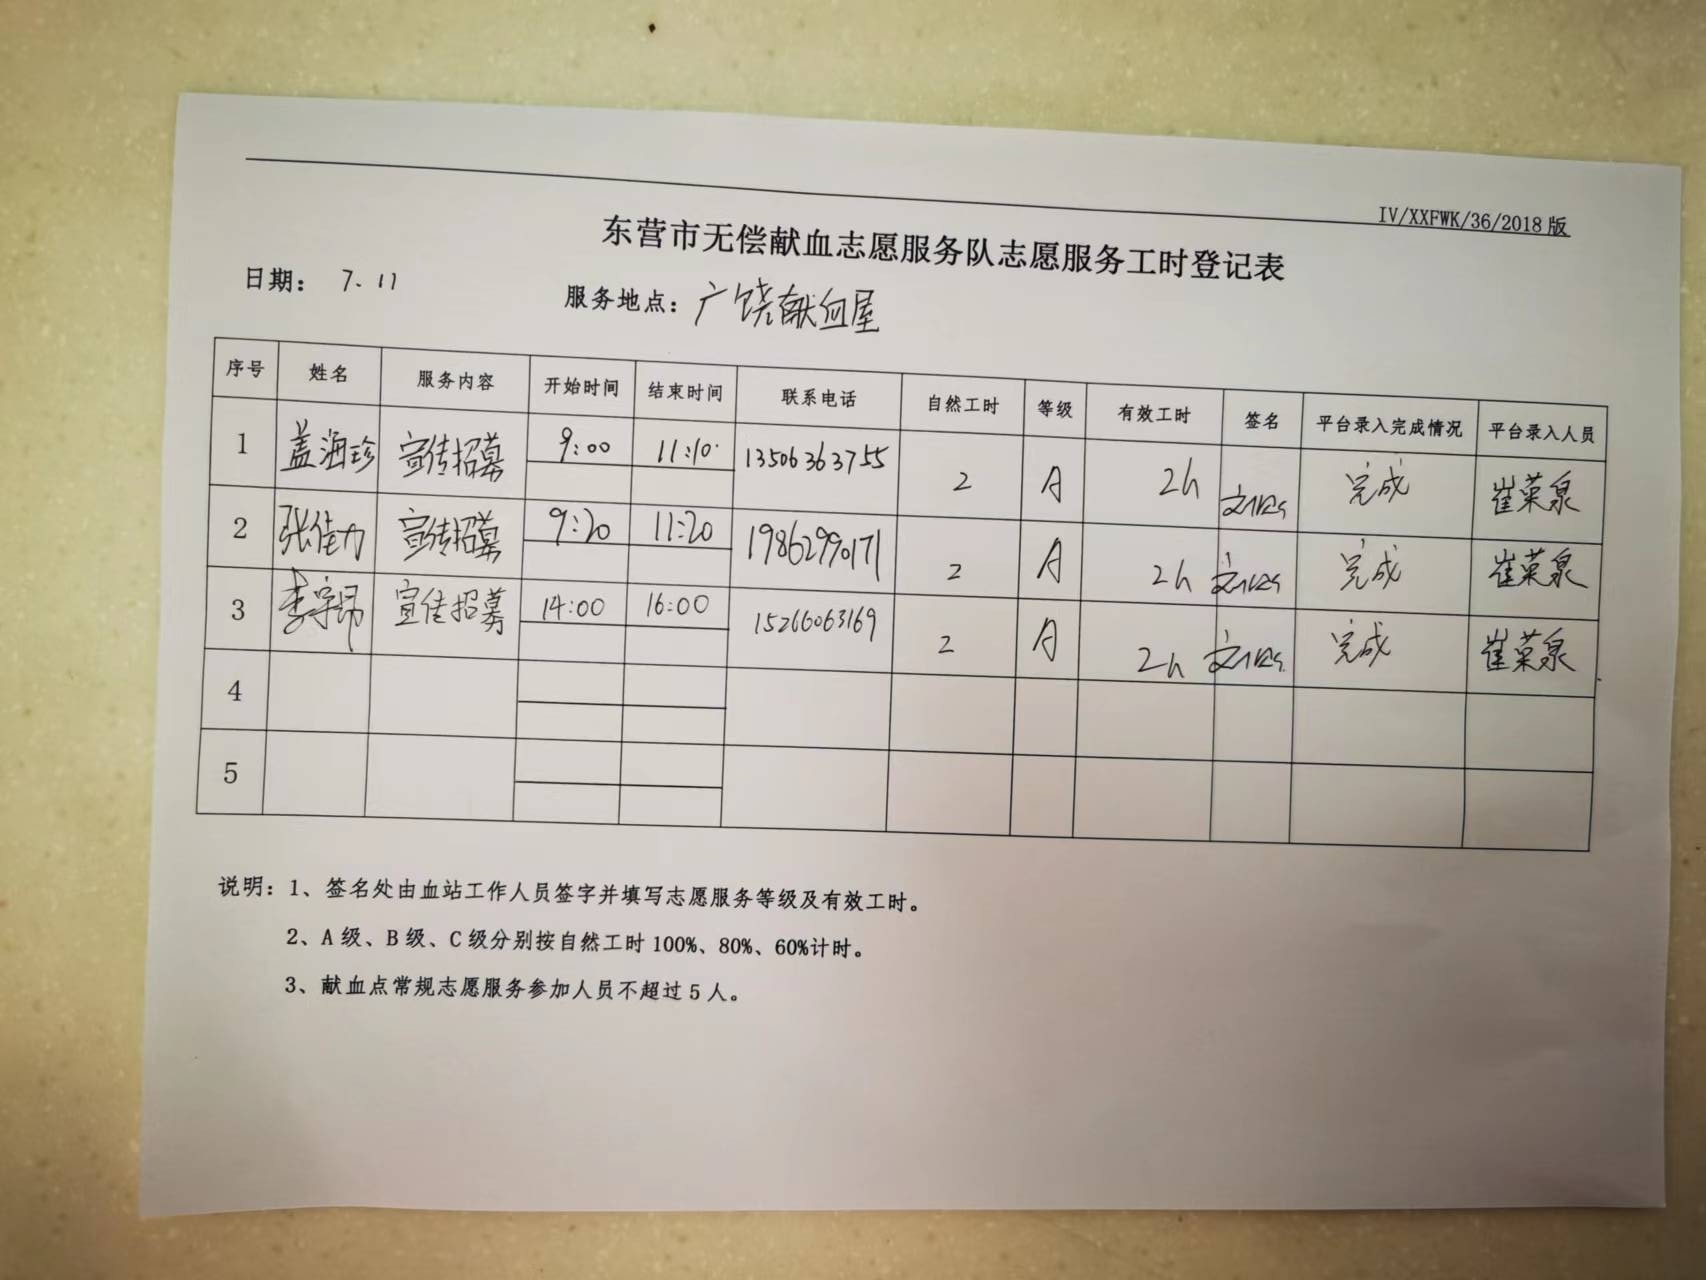 IV/XXFWK/36/2018版
东营市无偿献血志愿服务队志愿服务工时登记表
日期： 7.11 服务地点：广饶献血屋
序号 姓名 服务内容 开始时间 结束时间 联系电话 自然工时 等级 有效工时 签名 平台录入完成情况 平台录入人员
1 盖海珍 宣传招募 9:00 11:10 13506363755 2 A 2h 完成 崔荣泉
2 张佳力 宣传招募 9:20 11:20 19862990171 2 A 2h 完成 崔荣泉
3 李宗昂 宣传招募 14:00 16:00 15266063169 2 A 2h 完成 崔荣泉
4
5
说明：1、签名处由血站工作人员签字并填写志愿服务等级及有效工时。
2、A级、B级、C级分别按自然工时100%、80%、60%计时。
3、献血点常规志愿服务参加人员不超过5人。